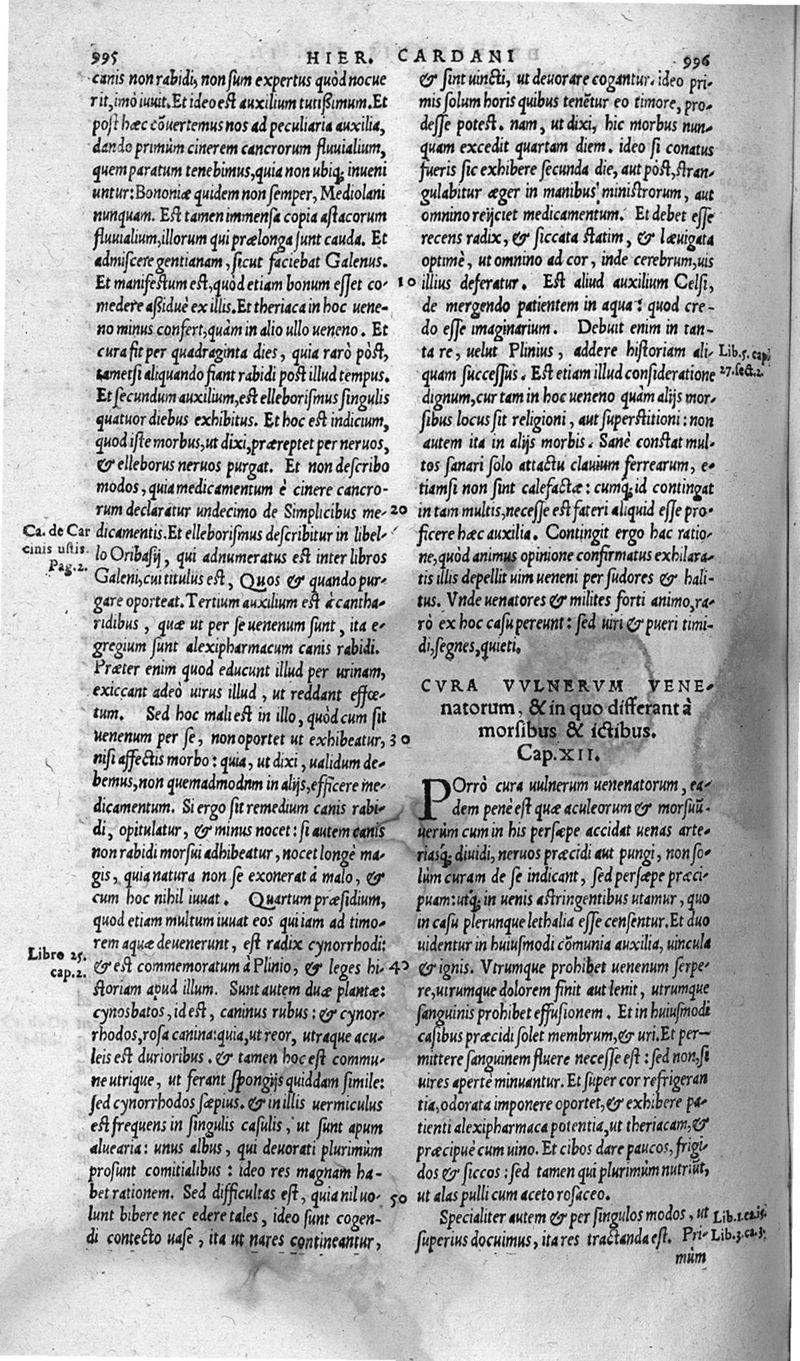 995
HIER. CARDANI
996
canis non rabidi, non sum expertus quòd nocue
rit, imò iuuit. Et ideo est auxilium tutißimum. Et
post hæc cōuertemus nos ad peculiaria auxilia,
dando primùm cinerem cancrorum fluuialium,
quem paratum tenebimus, quia non ubiq; inueni
untur: Bononiæ quidem non semper, Mediolani
nunquam. Est tamen immensa copia astacorum
fluuialium, illorum qui prælonga sunt cauda. Et
admiscere gentianam, sicut faciebat Galenus.
Et manifestum est, quòd etiam bonum esset co-
medere aßiduè ex illis. Et theriaca in hoc uene-
no minus confert, quàm in alio ullo ueneno. Et
cura fit per quadraginta dies, quia rarò pòst,
tametsi aliquando fiant rabidi post illud tempus.
Et secundum auxilium, est elleborismus singulis
quatuor diebus exhibitus. Et hoc est indicium,
quod iste morbus, ut dixi, præreptet per neruos,
& elleborus neruos purgat. Et non describo
modos, quia medicamentum è cinere cancro-
rum declaratur undecimo de Simplicibus me-
dicamentis. Et elleborismus describitur in libel-
lo Oribasij, qui adnumeratus est inter libros
Galeni, cui titulus est, Quos & quando pur-
gare oporteat. Tertium auxilium est à cantha-
ridibus, quæ ut per se uenenum sunt, ita e-
gregium sunt alexipharmacum canis rabidi.
Præter enim quod educunt illud per urinam,
exiccant adeò uirus illud, ut reddant effœ-
tum. Sed hoc mali est in illo, quòd cum sit
uenenum per se, non oportet ut exhibeatur,
nisi affectis morbo: quia, ut dixi, ualidum de-
bemus, non quemadmodnm in alijs, efficere me-
dicamentum. Si ergo sit remedium canis rabi-
di, opitulatur, & minus nocet: si autem canis
non rabidi morsui adhibeatur, nocet longè ma-
gis, quia natura non se exonerat à malo, &
cum hoc nihil iuuat. Quartum præsidium,
quod etiam multum iuuat eos qui iam ad timo-
rem aquæ deuenerunt, est radix cynorrhodi:
& est commemoratum à Plinio, & leges hi-
storiam apud illum. Sunt autem duæ plantæ:
cynosbatos, id est, caninus rubus: & cynor-
rhodos, rosa canina: quia, ut reor, utraque acu-
leis est durioribus. & tamen hoc est commu-
ne utrique, ut ferant spongijs quiddam simile:
sed cynorrhodos sæpius. & in illis uermiculus
est frequens in singulis casulis, ut sunt apum
aluearia: unus albus, qui deuorati plurimùm
prosunt comitialibus: ideo res magnam ha-
bet rationem. Sed difficultas est, quia nil uo-
lunt bibere nec edere tales, ideo sunt cogen-
di contecto uase, ita ut nares contineantur,
Ca. de Car
cinis ustis.
Pag. 2.
Libro 25.
cap. 2.
10
20
30
40
50
& sint uincti, ut deuorare cogantur. ideo pri-
mis solum horis quibus tenētur eo timore, pro-
desse potest. nam, ut dixi, hic morbus nun-
quam excedit quartam diem. ideo si conatus
fueris sic exhibere secunda die, aut pòst, stran-
gulabitur æger in manibus ministrorum, aut
omnino reijciet medicamentum. Et debet esse
recens radix, & siccata statim, & læuigata
optimè, ut omnino ad cor, inde cerebrum, uis
illius deferatur. Est aliud auxilium Celsi,
de mergendo patientem in aqua: quod cre-
do esse imaginarium. Debuit enim in tan-
ta re, uelut Plinius, addere historiam ali-
quam successus. Est etiam illud consideratione
dignum, cur tam in hoc ueneno quàm alijs mor-
sibus locus sit religioni, aut superstitioni: non
autem ita in alijs morbis. Sanè constat mul-
tos sanari solo attactu clauium ferrearum, e-
tiamsi non sint calefactæ: cumq; id contingat
in tam multis, necesse est fateri aliquid esse pro-
ficere hæc auxilia. Contingit ergo hac ratio-
ne, quòd animus opinione confirmatus exhilara-
tis illis depellit uim ueneni per sudores & hali-
tus. Vnde uenatores & milites forti animo, ra-
rò ex hoc casu pereunt: sed uiri & pueri timi-
di, segnes, quieti.
Lib. 5. cap.
27. sect. 2.
CVRA VVLNERVM VENE-
natorum, & in quo differant à
morsibus & ictibus.
Cap. XII.
POrrò cura uulnerum uenenatorum, ea-
dem penè est quæ aculeorum & morsuū.
uerùm cum in his persæpe accidat uenas arte-
riasq; diuidi, neruos præcidi aut pungi, non so-
lùm curam de se indicant, sed persæpe præci-
puam: utq; in uenis astringentibus utamur, quo
in casu plerunque lethalia esse censentur. Et duo
uidentur in huiusmodi cōmunia auxilia, uincula
& ignis. Vtrumque prohibet uenenum serpe-
re, utrumque dolorem finit aut lenit, utrumque
sanguinis prohibet effusionem. Et in huiusmodi
casibus præcidi solet membrum, & uri. Et per-
mittere sanguinem fluere necesse est: sed non, si
uires apertè minuantur. Et super cor refrigeran
tia, odorata imponere oportet, & exhibere pa-
tienti alexipharmaca potentia, ut theriacam, &
præcipuè cum uino. Et cibos dare paucos, frigi-
dos & siccos: sed tamen qui plurimùm nutriūt,
ut alas pulli cum aceto rosaceo.
Specialiter autem & per singulos modos, ut
superius docuimus, ita res tractanda est. Pri-
mùm
Lib. 1. ca. 15.
Lib. 3. ca. 3.